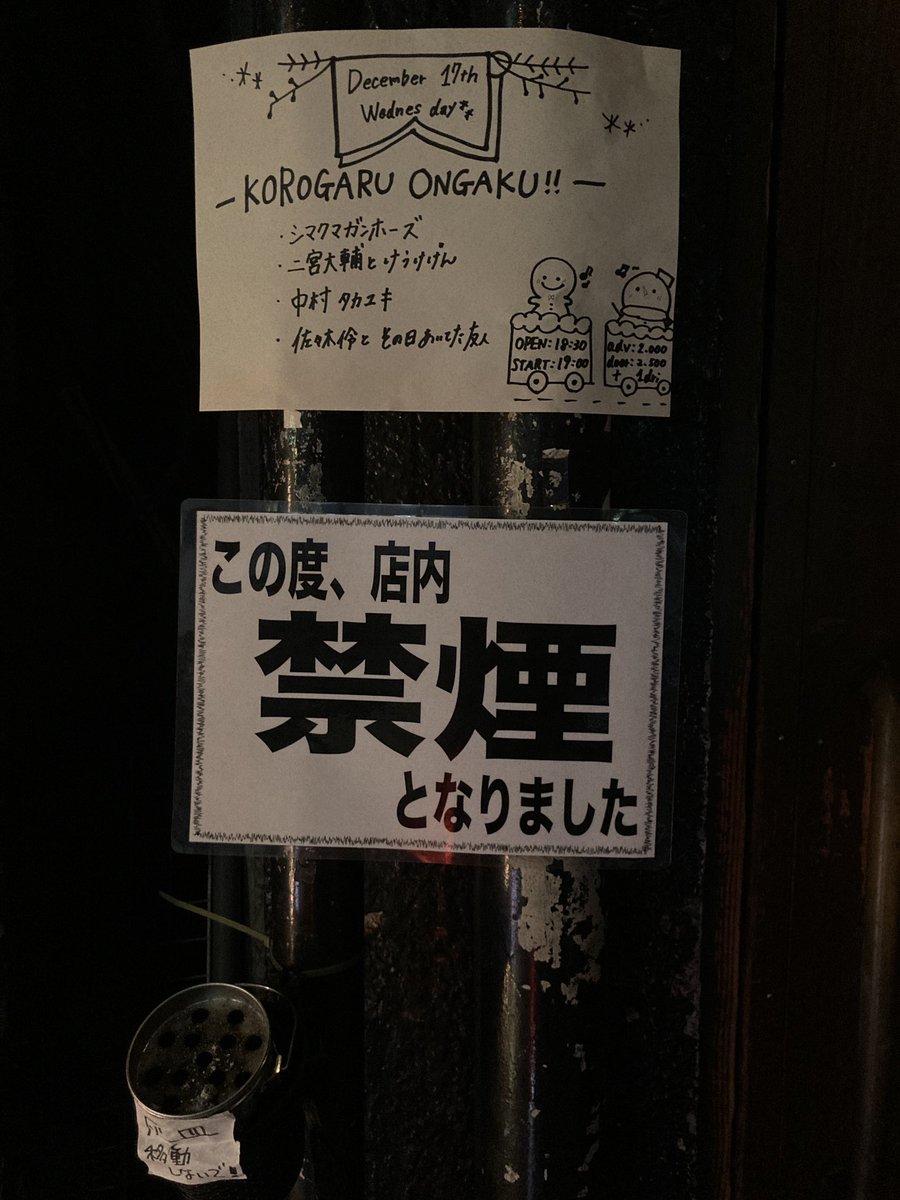 December 17th
Wednesday
-KOROGARU ONGAKU!! -
・シマクマガンホーズ
・二宮大輔とけうけげん
・中村 タカユキ
・佐々木伶と その日あいてた友人
OPEN: 18:30
START: 19:00
adv: 2.000
door: 2.500
+ 1dri
この度、店内
禁煙
となりました
灰皿
移動
しないで!!